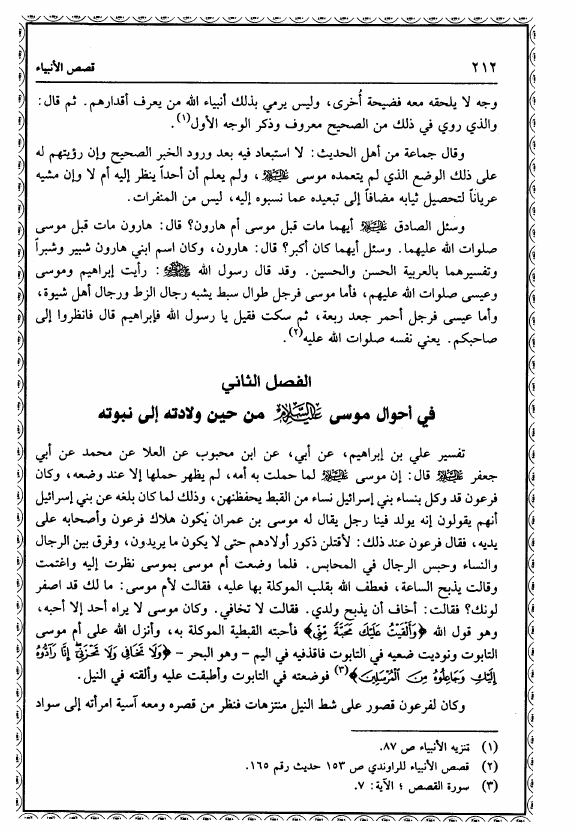 ٢١٢ قصص الأنبياء
وجه لا يلحقه معه فضيحة أُخرى، وليس يرمي بذلك أنبياء الله من يعرف أقدارهم. ثم قال:
والذي روي في ذلك من الصحيح معروف وذكر الوجه الأول(١).
وقال جماعة من أهل الحديث: لا استبعاد فيه بعد ورود الخبر الصحيح وإن رؤيتهم له
على ذلك الوضع الذي لم يتعمده موسى عليه السلام، ولم يعلم أن أحداً ينظر إليه أم لا وإن مشيه
عرياناً لتحصيل ثيابه مضافاً إلى تبعيده عما نسبوه إليه، ليس من المنفرات.
وسئل الصادق عليه السلام أيهما مات قبل موسى أم هارون؟ قال: هارون مات قبل موسى
صلوات الله عليهما. وسئل أيهما كان أكبر؟ قال: هارون، وكان اسم ابني هارون شبير وشبراً
وتفسيرهما بالعربية الحسن والحسين. وقد قال رسول الله ﷺ: رأيت إبراهيم وموسى
وعيسى صلوات الله عليهم، فأما موسى فرجل طوال سبط يشبه رجال الزط ورجال أهل شيوة،
وأما عيسى فرجل أحمر جعد ربعة، ثم سكت فقيل يا رسول الله فإبراهيم قال فانظروا إلى
صاحبكم. يعني نفسه صلوات الله عليه(٢).
الفصل الثاني
في أحوال موسى عليه السلام من حين ولادته إلى نبوته
تفسير علي بن إبراهيم، عن أبي، عن ابن محبوب عن العلا عن محمد عن أبي
جعفر عليه السلام قال: إن موسى عليه السلام لما حملت به أمه، لم يظهر حملها إلا عند وضعه، وكان
فرعون قد وكل بنساء بني إسرائيل نساء من القبط يحفظنهن، وذلك لما كان بلغه عن بني إسرائيل
أنهم يقولون إنه يولد فينا رجل يقال له موسى بن عمران يكون هلاك فرعون وأصحابه على
يديه، فقال فرعون عند ذلك: لأقتلن ذكور أولادهم حتى لا يكون ما يريدون، وفرق بين الرجال
والنساء وحبس الرجال في المحابس. فلما وضعت أم موسى بموسى نظرت إليه واغتمت
وقالت يذبح الساعة، فعطف الله بقلب الموكلة بها عليه، فقالت لأم موسى: ما لك قد اصفر
لونك؟ فقالت: أخاف أن يذبح ولدي. فقالت لا تخافي. وكان موسى لا يراه أحد إلا أحبه،
وهو قول الله ﴿وَأَلْقَيْتُ عَلَيْكَ مَحَبَّةً مِّنِّي﴾ فأحبته القبطية الموكلة به، وأنزل الله على أم موسى
التابوت ونوديت ضعيه في التابوت فاقذفيه في اليم - وهو البحر - ﴿وَلَا تَخَافِي وَلَا تَحْزَنِي إِنَّا رَادُّوهُ
إِلَيْكِ وَجَاعِلُوهُ مِنَ الْمُرْسَلِينَ﴾(٣) فوضعته في التابوت وأطبقت عليه وألقته في النيل.
وكان لفرعون قصور على شط النيل منتزهات فنظر من قصره ومعه آسية امرأته إلى سواد
(١) تنزيه الأنبياء ص ٨٧.
(٢) قصص الأنبياء للراوندي ص ١٥٣ حديث رقم ١٦٥.
(٣) سورة القصص ؛ الآية: ٧.